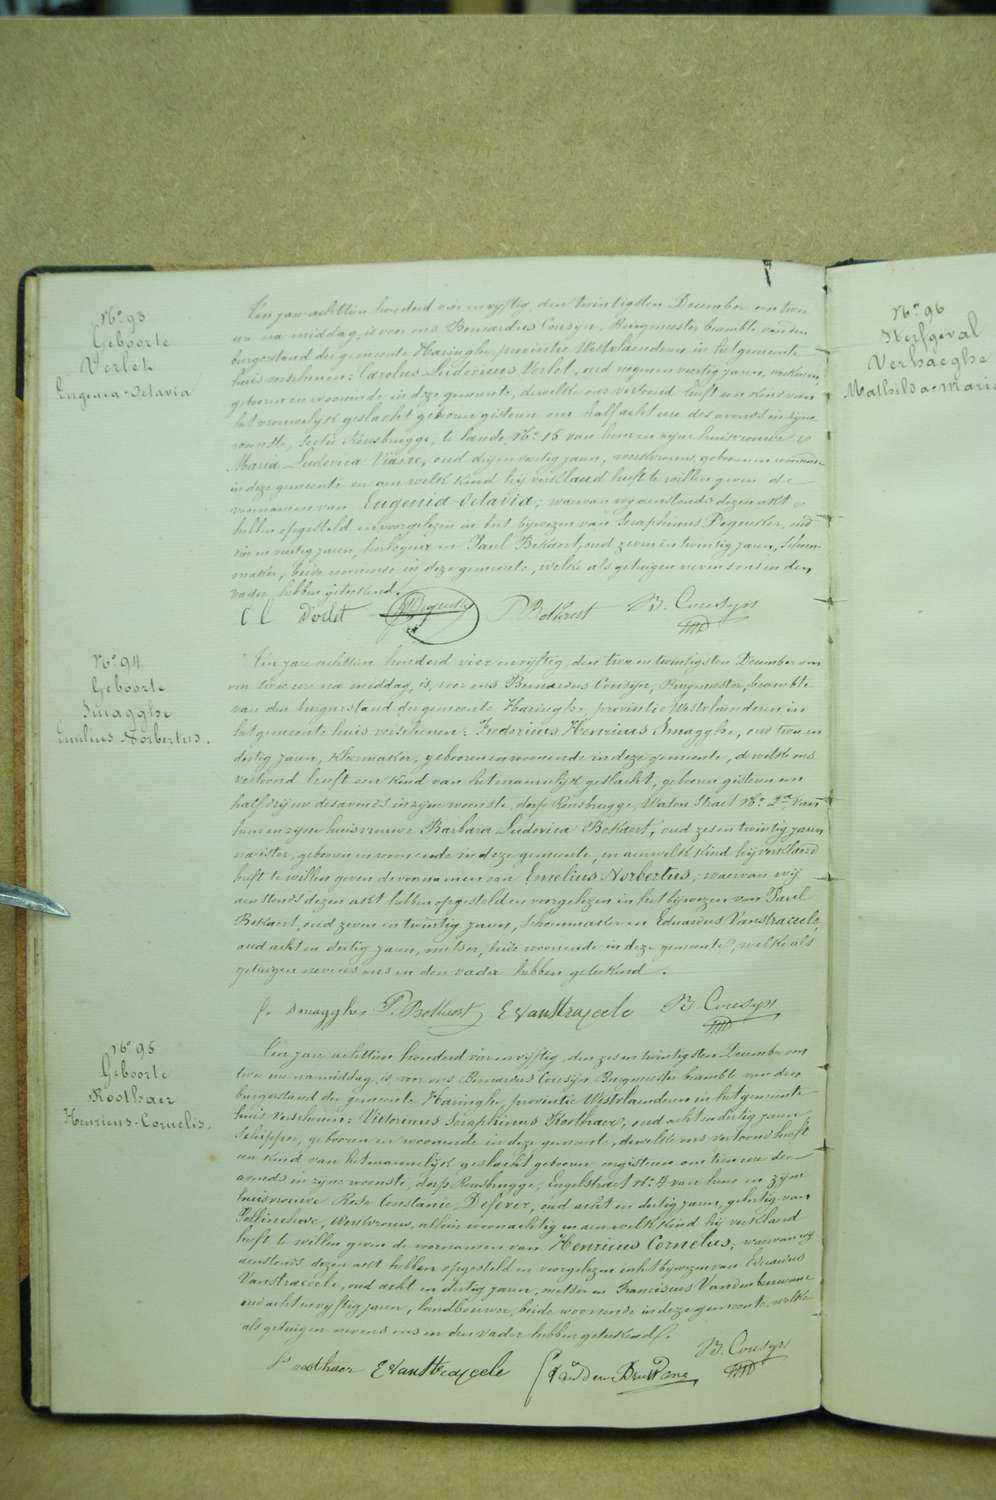 N° 93
Geboorte
Verlet
Eugenia-Octavia
Een jaar achttien honderd vier en vyftig, den twintigsten December om twee
ure na middag, is voor ons Bernardus Cousyn, Burgmeester beambte van den
burgerstand der gemeente Haringhe, provintie Westvlaenderen in het gemeente
huis verschenen: Carolus Ludovicus Verlet, oud negen en veertig jaren, werkman,
geboren en woonende in deze gemeente, dewelke ons vertoond heeft een kind van
het vrouwelyk geslacht geboren gisteren om half acht ure des avonds in zyne
woonste, sectie Rousbrugge, te lande, N° 16 van hem en zyne huisvrouwe
Maria Ludovica Viaene, oud dry en veertig jaren, werkvrouw, geboren en woonende
in deze gemeente en aan welk kind hy verklaard heeft te willen geven de
voornamen van Eugenia-Octavia; waervan wy aenstonds dezen akt
hebben opgesteld en voorgelezen in het bywezen van Seraphinus Dequeker, oud
vier en veertig jaren, herbergier en Paul Bekaert, oud zeven en twintig jaren, schoen-
maker, beide woonende in deze gemeente, welke als getuigen nevens ons en den
vader hebben geteekend.
C L Verlet Dequeker P. Bekaert B. Cousyn
N° 94
Geboorte
Smagghe
Emilius Norbertus.
Een jaar achttien honderd vier en vyftig, den twee en twintigsten December om
twee ure na middag, is, voor ons Bernardus Cousyn, Burgmeester, beambte
van den burgerstand der gemeente Haringhe, provintie Westvlaenderen in
het gemeente huis verschenen: Fredericus Henricus Smagghe, oud twee en
dertig jaren, kleermaker, geboren en woonende in deze gemeente, dewelke ons
vertoond heeft een kind van het mannelyk geslacht, geboren gisteren om
half dry ure des avonds in zyne woonste, dorp Rousbrugge, Watou Straet N° 2 van
hem en zyne huisvrouwe Barbara Ludovica Bekaert, oud zes en twintig jaren
naeister, geboren en woonende in deze gemeente, en aen welk kind hy verklaard
heeft te willen geven de voornamen van Emelius Norbertus; waervan wy
aenstonds dezen akt hebben opgesteld en voorgelezen in het bywezen van Paul
Bekaert, oud zeven en twintig jaren, schoenmaker en Eduardus Vanstraceele,
oud acht en dertig jaren, metser, beide woonende in deze gemeente, welke als
getuigen nevens ons en den vader hebben geteekend.
f. smagghe P. Bekaert E VanStraceele B. Cousyn
N° 95
Geboorte
Roothaer
Henricus-Cornelis.
Een jaar achttien honderd vier en vyftig, den zes en twintigsten December om
twee ure na middag, is, voor ons Bernardus Cousyn Burgmeester beambte van den
burgerstand der gemeente Haringhe, provintie Westvlaenderen in het gemeente
huis verschenen: Victorinus Seraphinus Roothaer, oud acht en dertig jaren,
Schipper, geboren en woonende in deze gemeente, dewelke ons vertoond heeft
een kind van het mannelyk geslacht geboren eergisteren om tien ure des
avonds in zyne woonste, dorp Rousbrugge, Engelstraet N° 4 van hem en zyne
huisvrouwe Rosa Constance Defever, oud acht en dertig jaren, geboortig van
Pollinchove, Werkvrouw, alhier woonachtig en aen welk kind hy verklaard
heeft te willen geven de voornamen van Henricus Cornelus; waervan wy
aenstonds dezen akt hebben opgesteld en voorgelezen in het bywezen van Eduardus
Vanstraceele, oud acht en dertig jaren, metser en Franciscus Vandenbruwane
oud acht en vyftig jaren, landbouwer, beide woonende in deze gemeente, welke
als getuigen nevens ons en den vader hebben geteekend.
roothaer E VanStraceele Van Den Bruwane B. Cousyn
N° 96
Sterfgeval
Verhaeghe
Mathilda-Maria